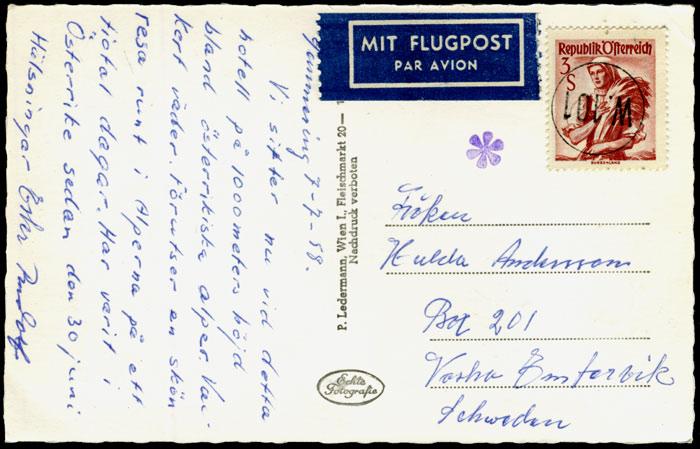 Semmering 7-7-58.
Vi sitter nu vid detta
hotell på 1000 meters höjd
bland österrikiska alper. Vac-
kert väder. Förutser en skön
resa runt i Alperna på ett
tiotal dagar. Har varit i
Österrike sedan den 30 juni
Hälsningar Ester
P. Ledermann, Wien I., Fleischmarkt 20—
Nachdruck verboten
Echte
Fotografie
MIT FLUGPOST
PAR AVION
Republik Österreich
3
S
W.101
BURGENLAND
Fröken
Hulda Andersson
Box 201
Västra Emtervik
Schweden